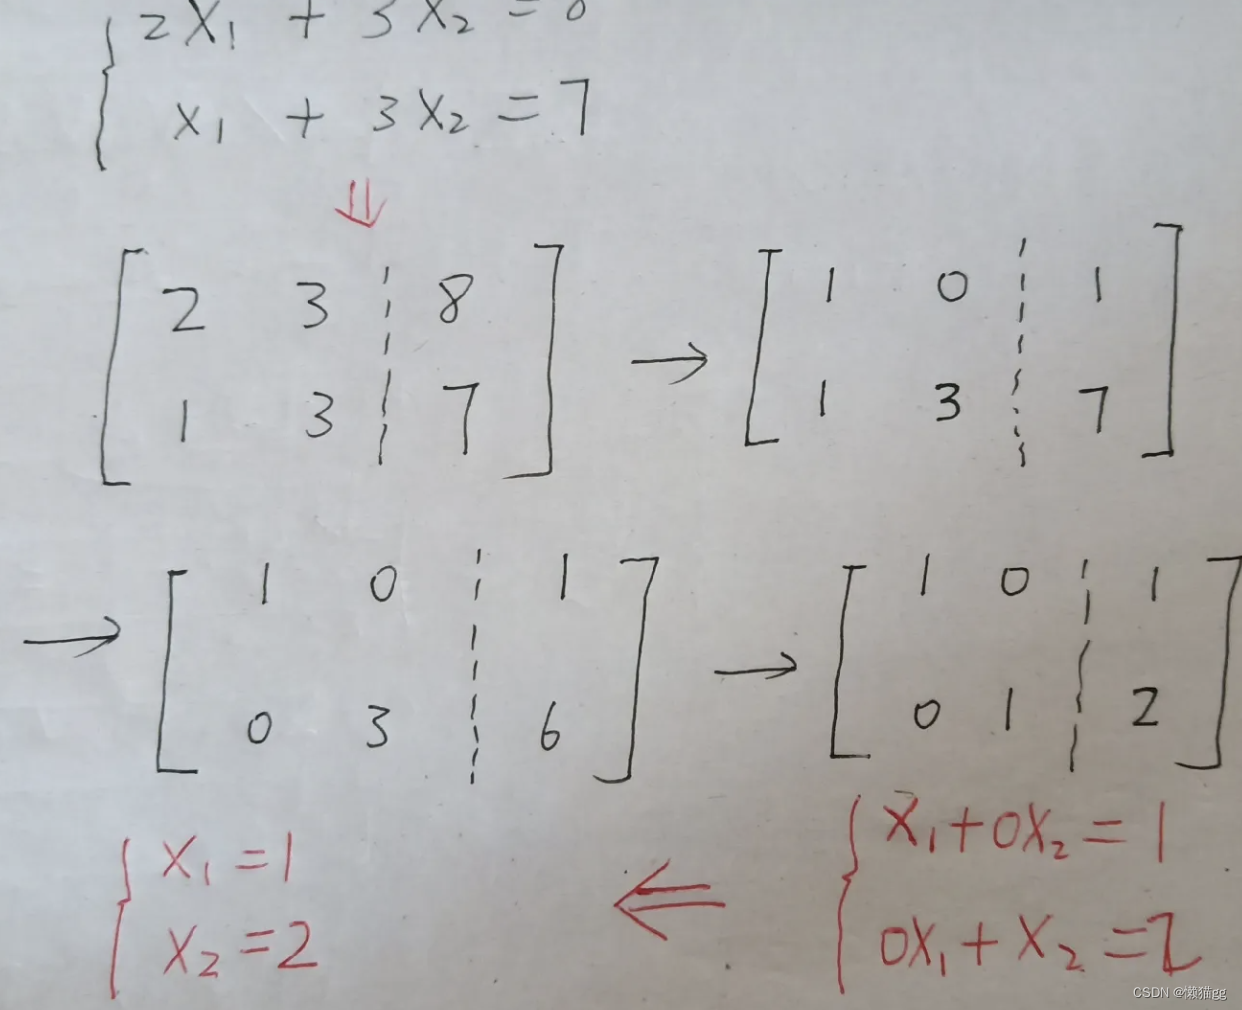 2x₁ + 3x₂ = 8
x₁ + 3x₂ = 7
⇓
2 3 ¦ 8
1 3 ¦ 7
→
1 0 ¦ 1
1 3 ¦ 7
→
1 0 ¦ 1
0 3 ¦ 6
→
1 0 ¦ 1
0 1 ¦ 2
x₁ + 0x₂ = 1
0x₁ + x₂ = 2
⇐
x₁ = 1
x₂ = 2
CSDN @懒猫gg